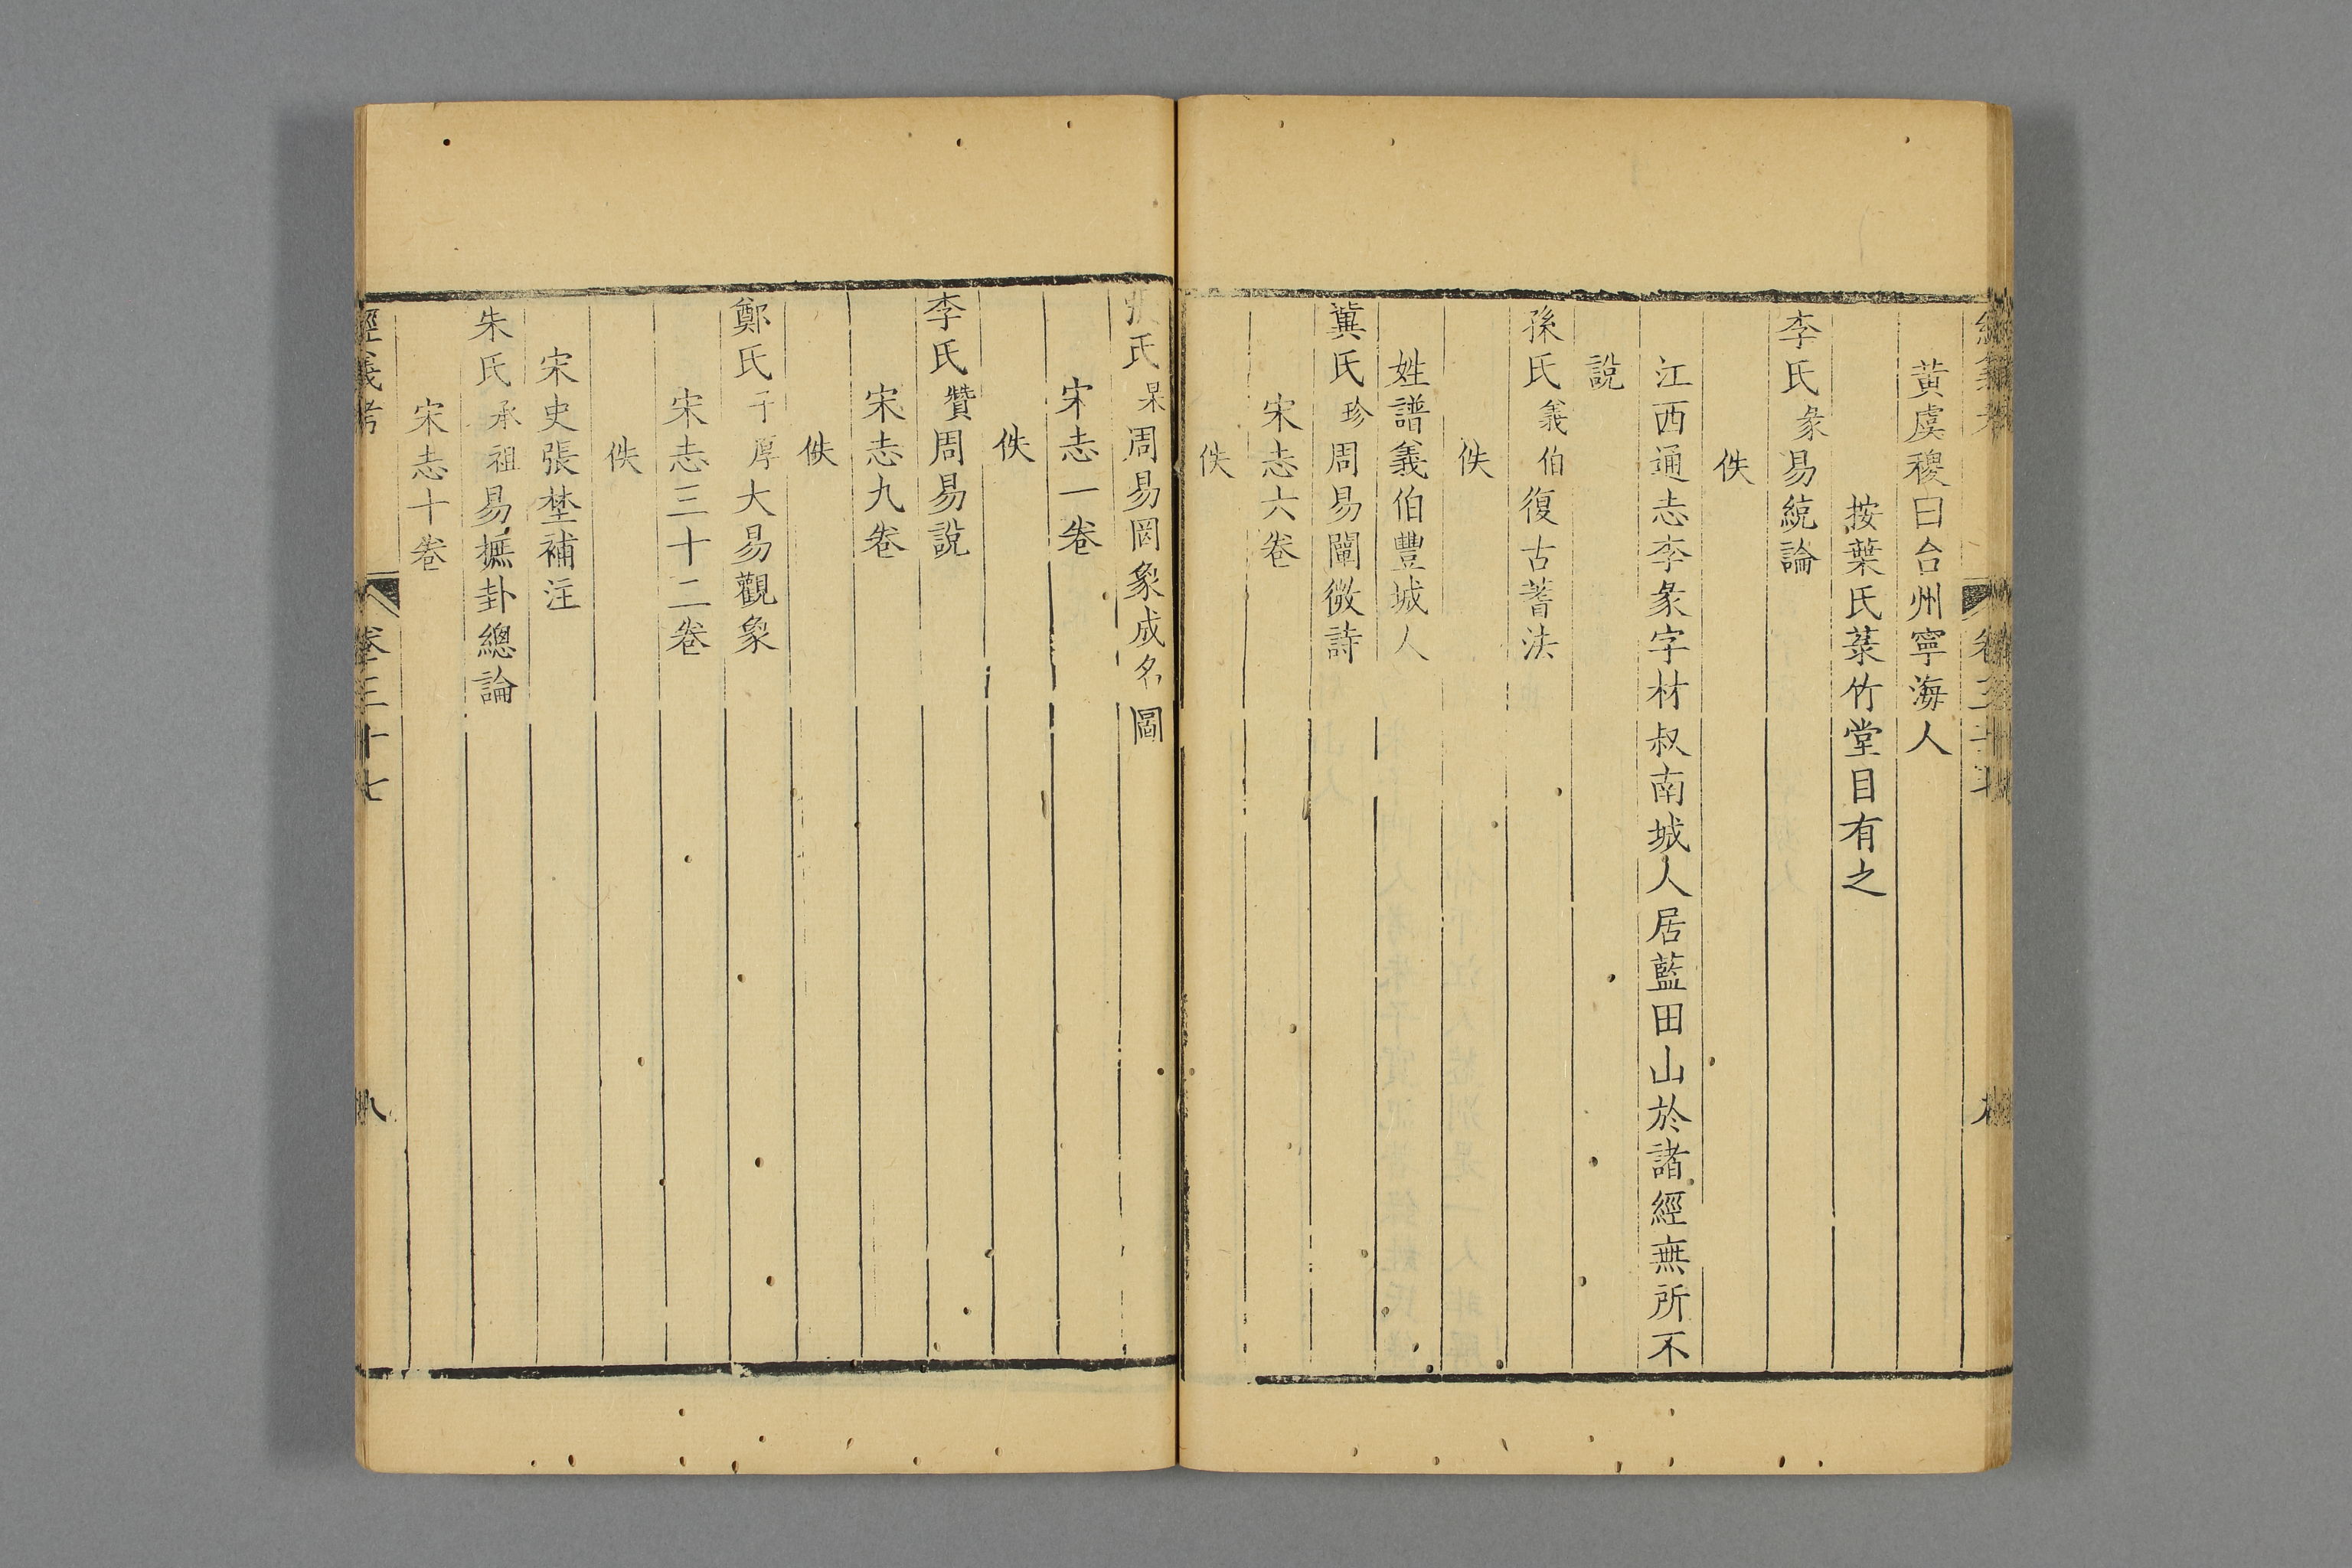 經義考 卷三十七
黃虞稷曰台州寧海人
按葉氏菉竹堂目有之
李氏彖易統論
佚
江西通志李彖字材叔南城人居藍田山於諸經無所不
說
孫氏義伯復古蓍法
佚
姓譜義伯豐城人
冀氏珍周易闡微詩
宋志六卷
佚
張氏杲周易罔象成名圖
宋志一卷
佚
李氏贊周易說
宋志九卷
佚
鄭氏子厚大易觀象
宋志三十二卷
佚
宋史張埜補注
朱氏承祖易摭卦總論
宋志十卷
經義考 卷三十七 八